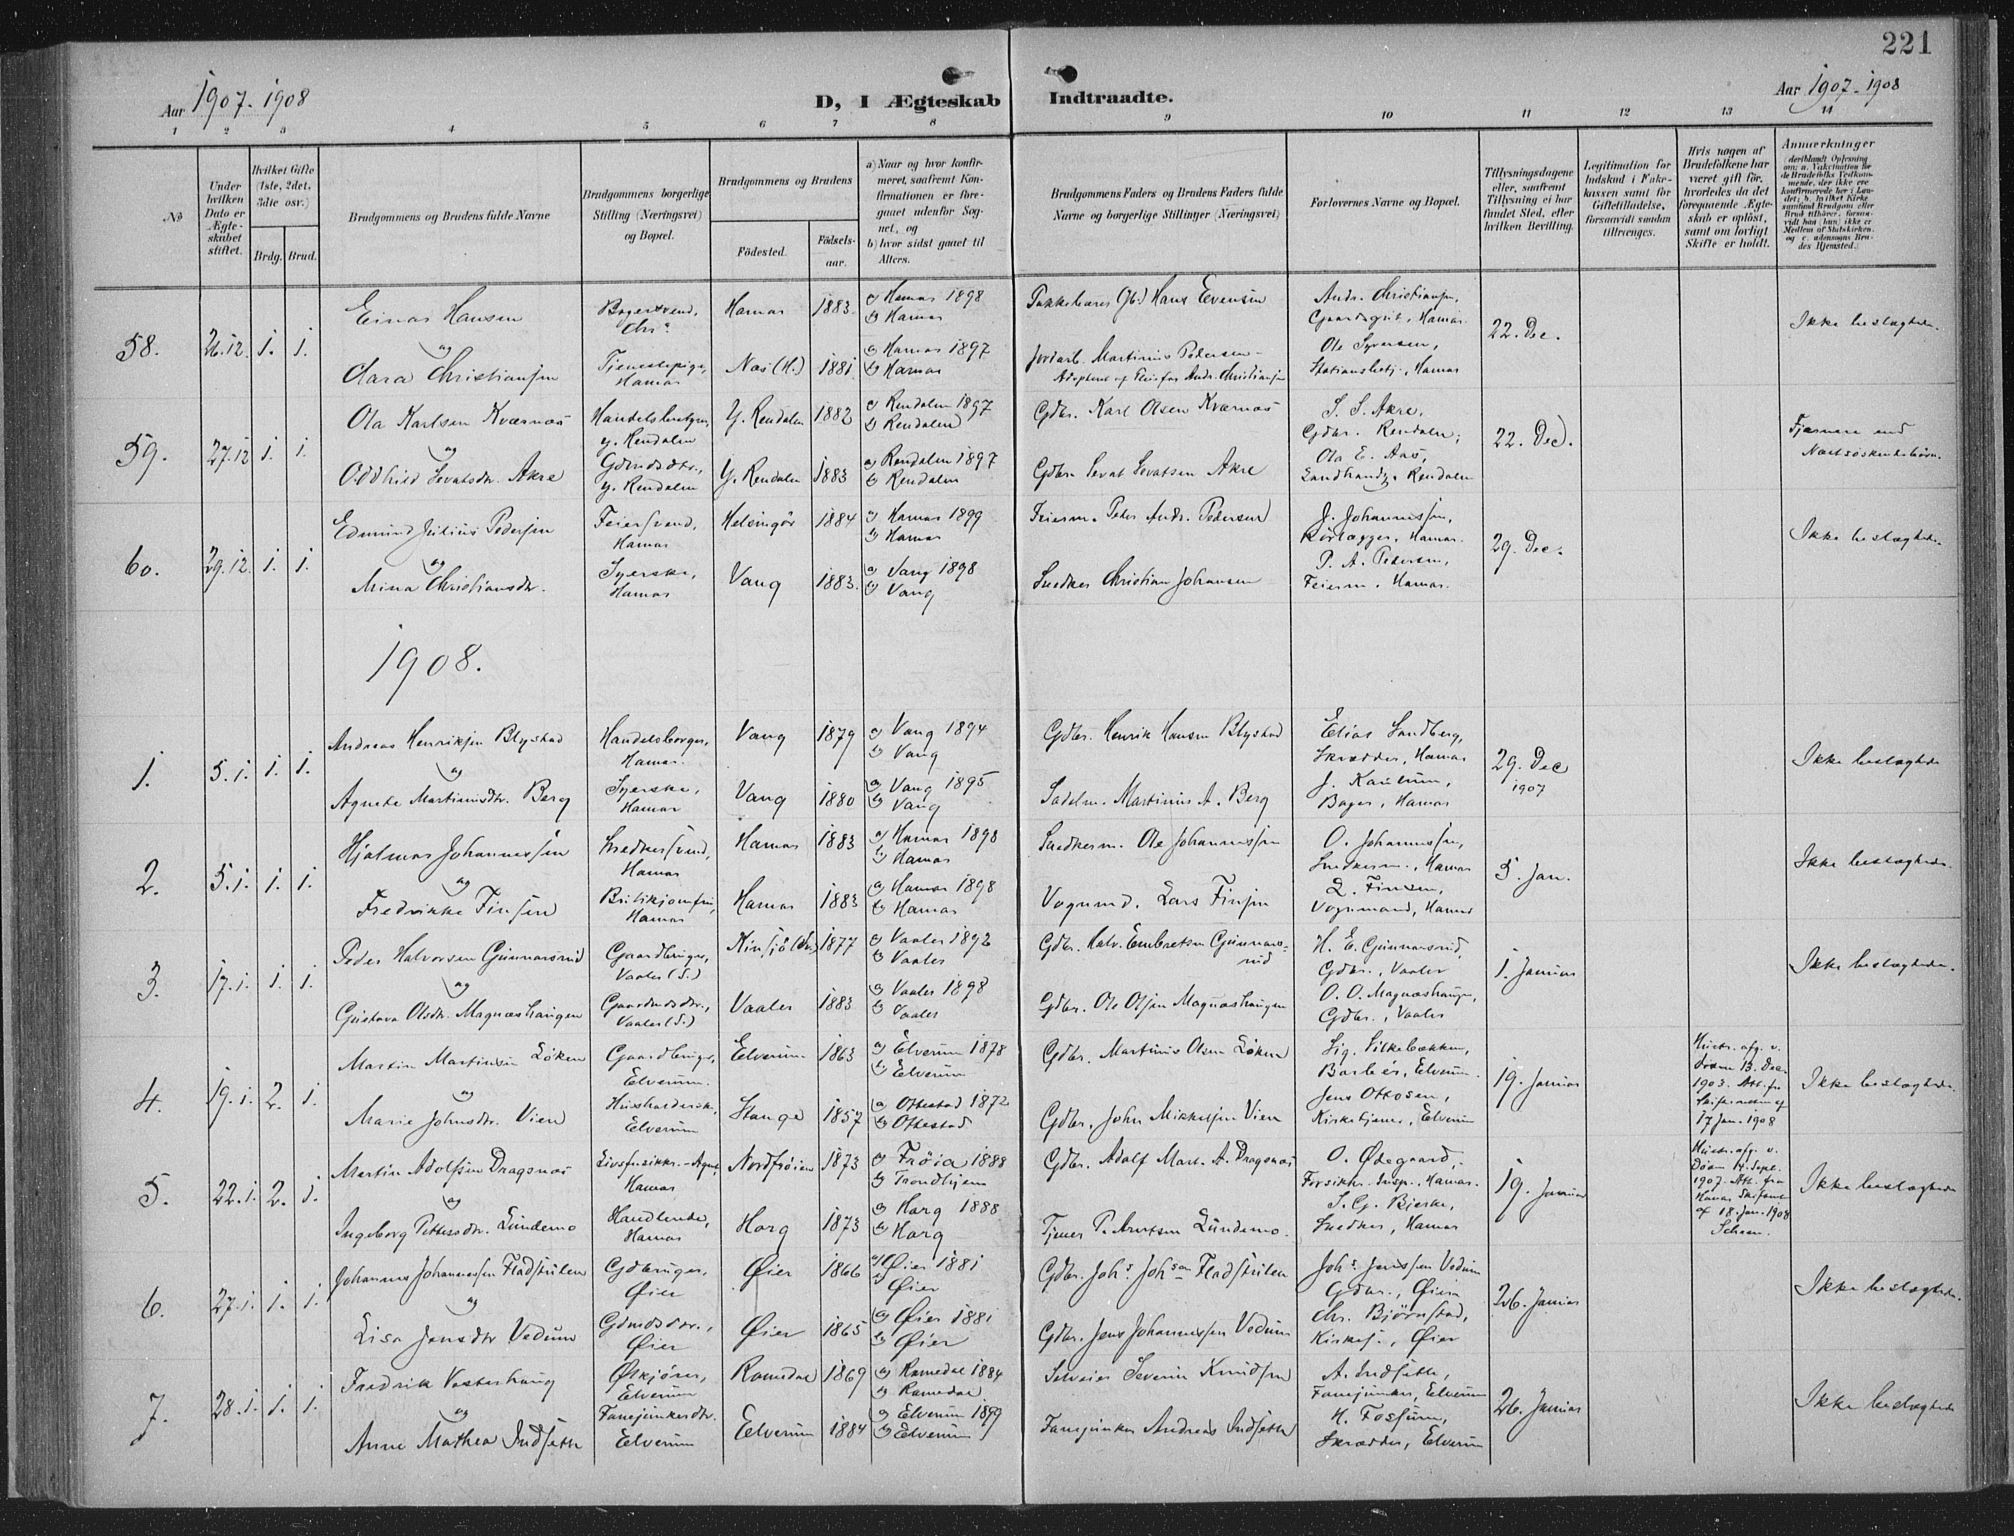 221
Aar 1907-1908
D, I Ægteskab Indtraadte.
Aar 1907-1908
1 2 3 4 5 6 7 8 9 10 11 12 13 14
No
Under hvilken Dato er Ægteskabet stiftet.
Hvilket Gifte (1ste, 2det, 3die osv.)
Brdg. Brud.
Brudgommens og Brudens fulde Navne
Brudgommens borgerlige Stilling (Næringsvei) og Bopæl.
Brudgommens og Brudens
Fødested.
Fødselsaar.
a) Naar og hvor konfirmeret, saafremt Konfirmationen er foregaaet udenfor Sognet, og
b) hvor sidst gaaet til Alters.
Brudgommens Faders og Brudens Faders fulde Navne og borgerlige Stillinger (Næringsvei)
Forlovernes Navne og Bopæl.
Tillysningsdagene eller, saafremt Tillysning ei har fundet Sted, efter hvilken Bevilling.
Legitimation for Indskud i Enkekassen samt for Giftetilladelse, forsaavidt saadan tiltrænges.
Hvis nogen af Brudefolkene har været gift før, hvorledes da det foregaaende Ægteskab er opløst, samt om lovligt Skifte er holdt.
Anmerkninger
58. 26.12. 1. 1.
Einar Hansen
Hamar 1883 a) Hamar 1898
b) Hamar
Hans Evensen
Andr. Christiansen,
Gaardsgut, Hamar
22. Dec.
Ikke beslægtede.
og
Clara Christiansen
Tjenestepige,
Hamar
Nes (H.) 1881 a) Hamar 1897
b) Hamar
Jordarb. Martinius Pedersen
Adoptent og Pleiefar Andr. Christiansen
Ole Syversen,
Stationsbetj., Hamar
59. 27.12 1. 1.
Ola Karlsen Kværnæs
Handelsbestyrer,
y. Rendalen
Y. Rendalen 1882 a) Rendalen 1897
b) Rendalen
Gdbr. Karl Olsen Kværnæs
S. S. Akre,
Gdbr. Rendalen;
22. Dec.
Fjernere end
Næstsøskendebørn.
og
Oddhild Sevatsdr. Akre
Gdmdsdtr.,
y. Rendalen
Y. Rendalen 1883 a) Rendalen 1897
b) Rendalen
Gdbr. Sevat Sevatsen Akre
Ola E. Aas,
Landhandl. Rendalen
60. 29.12. 1. 1.
Edmund Julius Pedersen
Feiersvend,
Hamar
Helsingør 1884 a) Hamar 1899
b) Hamar
Feierm. Peter Andr. Pedersen
J. Johannessen,
Rørlægger, Hamar.
29. Dec.
Ikke beslægtede.
og
Mina Christiansdr.
Syerske,
Hamar
Vang 1883. a) Vang 1898
b) Vang
Snedker Christian Johansen
P. A. Pedersen,
Feierm. Hamar.
1908.
1. 5.1. 1. 1.
Andreas Henriksen Blystad
Handelsborger,
Hamar.
Vang 1879 a) Vang 1894
b) Vang
Gdbr. Henrik Hansen Blystad
Elias Sandberg,
Skrædder, Hamar
29. Dec
1907
Ikke beslægtede
og
Agnete Martiniusdtr. Berg
Syerske,
Hamar
Vang 1880 a) Vang 1895
b) Vang
Sadelm. Martinius A. Berg
Bager, Hamar
2. 5.1. 1. 1.
Hjalmar Johannessen
Snedkersvend,
Hamar
Hamar 1883 a) Hamar 1898
b) Hamar
Snedkerm. Ole Johannessen
O. Johannessen,
Snedkerm., Hamar
5. Jan.
Ikke beslægtede
og
Fredrikke Finsen
Hamar
Hamar 1883 a) Hamar 1898
b) Hamar
Vognmd. Lars Finsen
L. Finsen,
Vognmand, Hamar
3. 17.1. 1. 1.
Peder Halvorsen Gunnarsrud
Gaardbruger,
Vaaler (S.)
1877 a) Vaaler 1892
b) Vaaler
Gdbr. Halv. Embretsen Gunnarsrud
H. E. Gunnarsrud,
Gdbr., Vaaler
1. Januar
Ikke beslægtede.
og
Gustava Olsdr. Magnæshaugen
Gaardmdsdtr.,
Vaaler (S.)
Vaaler 1883 a) Vaaler 1898
b) Vaaler
Gdbr. Ole Olsen Magnæshaugen
O. O. Magnæshaugen,
Gdbr., Vaaler
4. 19.1. 2. 1.
Martin Martinsen Løken
Gaardbruger,
Elverum.
Elverum 1863 a) Elverum 1878
b) Elverum
Gdbr. Martinus Olsen Løken
Sig. Silkebækken,
Barber, Elverum.
19. Januar
Hustr. afg. v.
Døden 13. Dec.
1903. Att. fra
Skifteretten af
17 Jan. 1908
Ikke beslægtede
og
Marie Johnsdtr. Vien
Husholderske,
Elverum
Stange 1857 a) Ottestad 1872
b) Ottestad
Gdbr. John Mikkelsen Vien
Jens Ottosen,
Kirketjener, Elverum
5. 22.1. 2. 1.
Martin Adolfsen Dragsnæs
Livsforsikkr.-Agent
Hamar
Nordfrøien 1873 a) Frøia 1888
b) Trondhjem
Gdbr. Adolf Mart. A. Dragsnæs
O. Ødegaard,
Forsikr. Insp., Hamar.
19. Januar
Hustr. afg. v.
Døden 14. Sept.
1907. Att. fra
Hamar Skifteret
af 18. Jan. 1908
Ikke beslægtede
og
Ingeborg Pettersdtr. Lundemo
Handlende,
Hamar
Horg 1873 a) Horg 1888
b) Horg
Tjener P. Arntsen Lundemo.
S. G. Bjerke,
Snedker, Hamar
6. 27.1. 1. 1.
Johannes Johannessen Fladstulen
Gdbruger,
Øier
Øier 1866 a) Øier 1881
b) Øier
Gdbr. Johs. Johsen Fladstulen
Johs. Jenssen Vedum
Gdbr., Øier
26. Januar
Ikke beslægtede.
og
Lisa Jensdtr Vedum
Gdmdsdtr.,
Øier
Øier 1865 a) Øier 1881
b) Øier
Gdbr. Jens Johannessen Vedum
Chr. Bjørnstad,
Kirkes., Øier
7. 28.1. 1. 1.
Fredrik Vesterhaug
Elverum
Romedal 1869 a) Romedal 1884
b) Romedal
Selveier Severin Knudsen
A. Indseth,
Fanejunker, Elverum
26. Januar
Ikke beslægtede
og
Anne Mathea Indseth
Fanejunkerdtr.
Elverum
Elverum 1884 a) Elverum 1899
b) Elverum
Fanejunker Andreas Indseth
H. Fossum,
Skrædder, Elverum